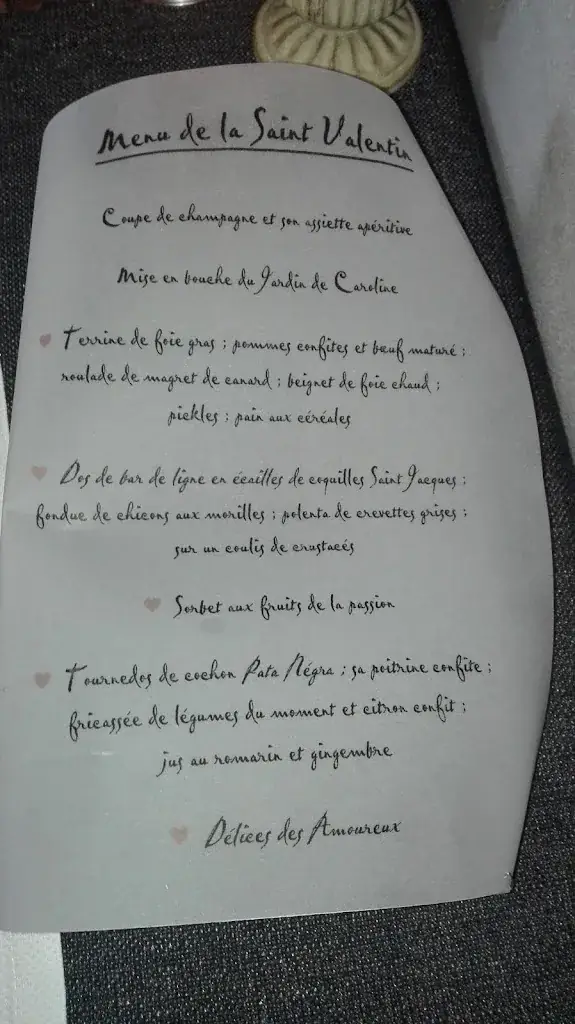 Menu de la Saint Valentin
Coupe de champagne et son assiette apéritive
Mise en bouche du Jardin de Caroline
Terrine de foie gras ; pommes confites et bœuf maturé ;
roulade de magret de canard ; beignet de foie chaud ;
pickles ; pain aux céréales
Dos de bar de ligne en écailles de coquilles Saint Jacques ;
fondue de chicons aux morilles ; polenta de crevettes grises ;
sur un coulis de crustacés
Sorbet aux fruits de la passion
Tournedos de cochon Pata Négra ; sa poitrine confite ;
fricassée de légumes du moment et citron confit ;
jus au romarin et gingembre
Délices des Amoureux